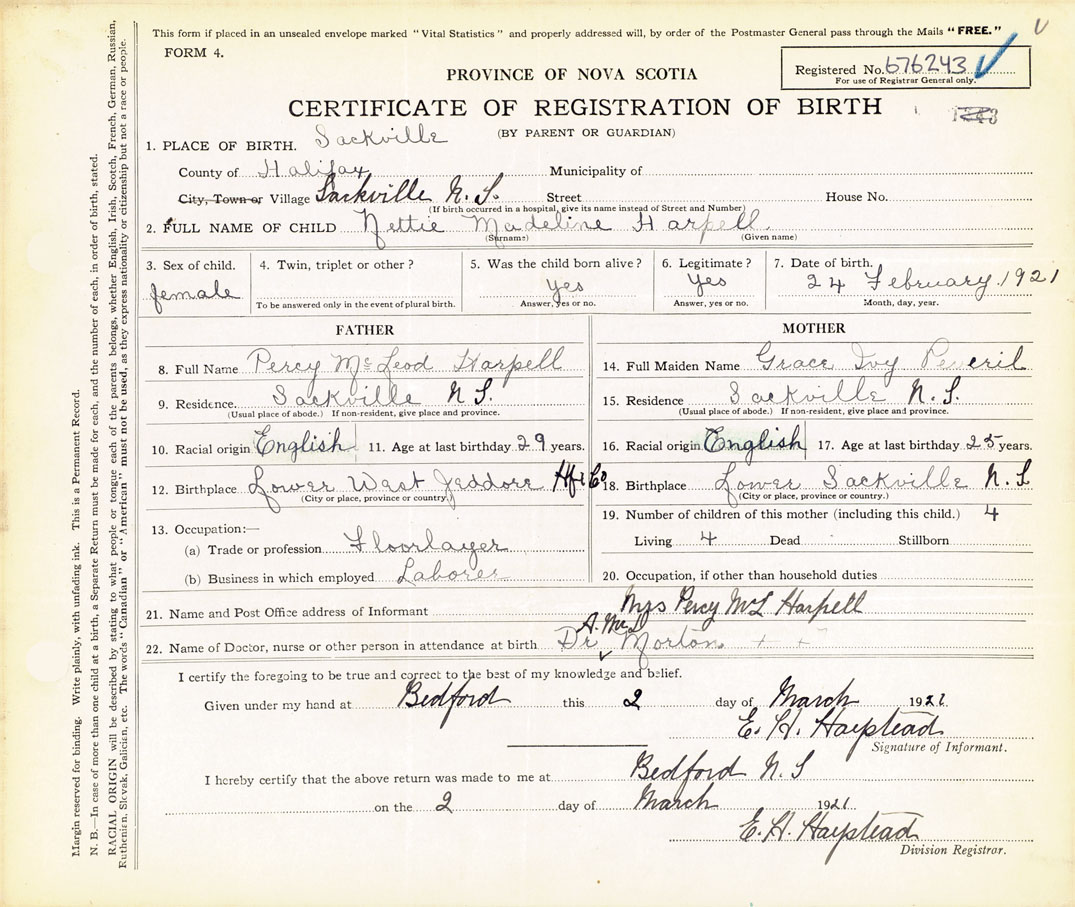 This form if placed in an unsealed envelope marked "Vital Statistics" and properly addressed will, by order of the Postmaster General pass through the Mails "FREE."
FORM 4.
Registered No. 676243
For use of Registrar General only.
PROVINCE OF NOVA SCOTIA
CERTIFICATE OF REGISTRATION OF BIRTH
(BY PARENT OR GUARDIAN)
1. PLACE OF BIRTH. Sackville
County of Halifax Municipality of
City, Town or Village Sackville N. S. Street House No.
(If birth occurred in a hospital, give its name instead of Street and Number)
2. FULL NAME OF CHILD Nettie Madeline Harpell
(Surname) (Given name)
3. Sex of child. 4. Twin, triplet or other? 5. Was the child born alive? 6. Legitimate? 7. Date of birth.
female yes yes 24 February 1921
To be answered only in the event of plural birth. Answer, yes or no. Answer, yes or no. Month, day, year.
FATHER
8. Full Name Percy McLeod Harpell
9. Residence. Sackville N. S.
(Usual place of abode.) If non-resident, give place and province.
10. Racial origin English 11. Age at last birthday 29 years.
12. Birthplace Lower West Jeddore Hfx Co
(City or place, province or country.)
13. Occupation:—
(a) Trade or profession Floorlayer
(b) Business in which employed Laborer
MOTHER
14. Full Maiden Name Grace Ivy Peveril
15. Residence Sackville N. S.
(Usual place of abode.) If non-resident, give place and province.
16. Racial origin English 17. Age at last birthday 25 years.
18. Birthplace Lower Sackville N. S
(City or place, province or country.)
19. Number of children of this mother (including this child.) 4
Living 4 Dead Stillborn
20. Occupation, if other than household duties
21. Name and Post Office address of Informant Mrs Percy McL Harpell
22. Name of Doctor, nurse or other person in attendance at birth Dr Morton
I certify the foregoing to be true and correct to the best of my knowledge and belief.
Given under my hand at Bedford this 2 day of March 1921.
E. H. Haystead
Signature of Informant.
I hereby certify that the above return was made to me at Bedford N. S
on the 2 day of March 1921.
E. H. Haystead
Division Registrar.
Margin reserved for binding. Write plainly, with unfading ink. This is a Permanent Record.
N. B.—In case of more than one child at a birth, a Separate Return must be made for each, and the number of each, in order of birth, stated.
RACIAL ORIGIN will be described by stating to what people or tongue each of the parents belongs, whether English, Irish, Scotch, French, German, Russian,
Ruthenian, Slovak, Galician, etc. The words "Canadian" or "American" must not be used, as they express nationality or citizenship but not a race or people.